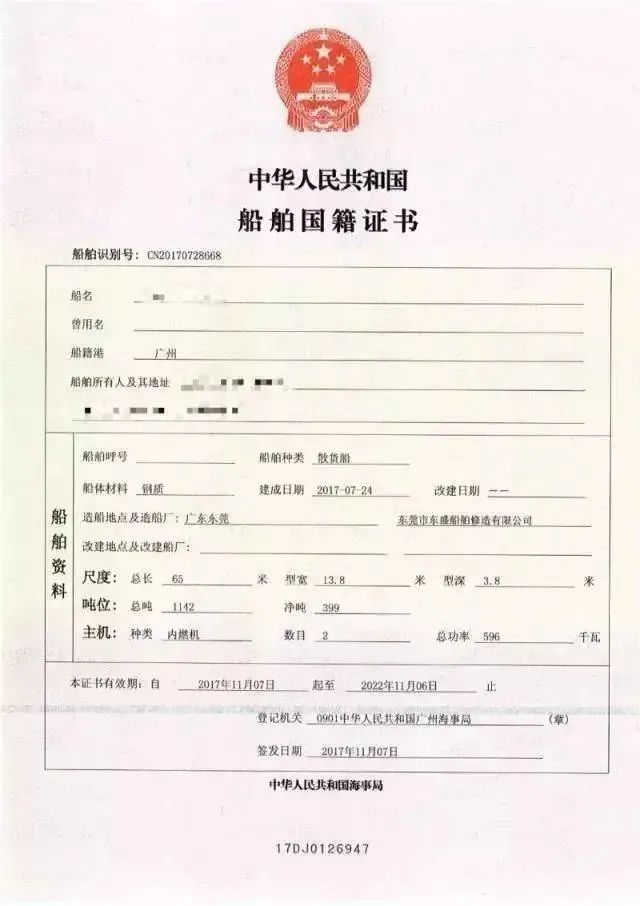 中华人民共和国
船舶国籍证书
船舶识别号：CN20170728668
船名
曾用名
船籍港 广州
船舶所有人及其地址
船舶资料
船舶呼号 船舶种类 散货船
船体材料 钢质 建成日期 2017-07-24 改建日期 --
造船地点及造船厂：广东东莞 东莞市东盛船舶修造有限公司
改建地点及改建船厂：
尺度：总长 65 米 型宽 13.8 米 型深 3.8 米
吨位：总吨 1142 净吨 399
主机：种类 内燃机 数目 2 总功率 596 千瓦
本证书有效期：自 2017年11月07日 起至 2022年11月06日 止
登记机关 0901中华人民共和国广州海事局 (章)
签发日期 2017年11月07日
中华人民共和国海事局
17DJ0126947